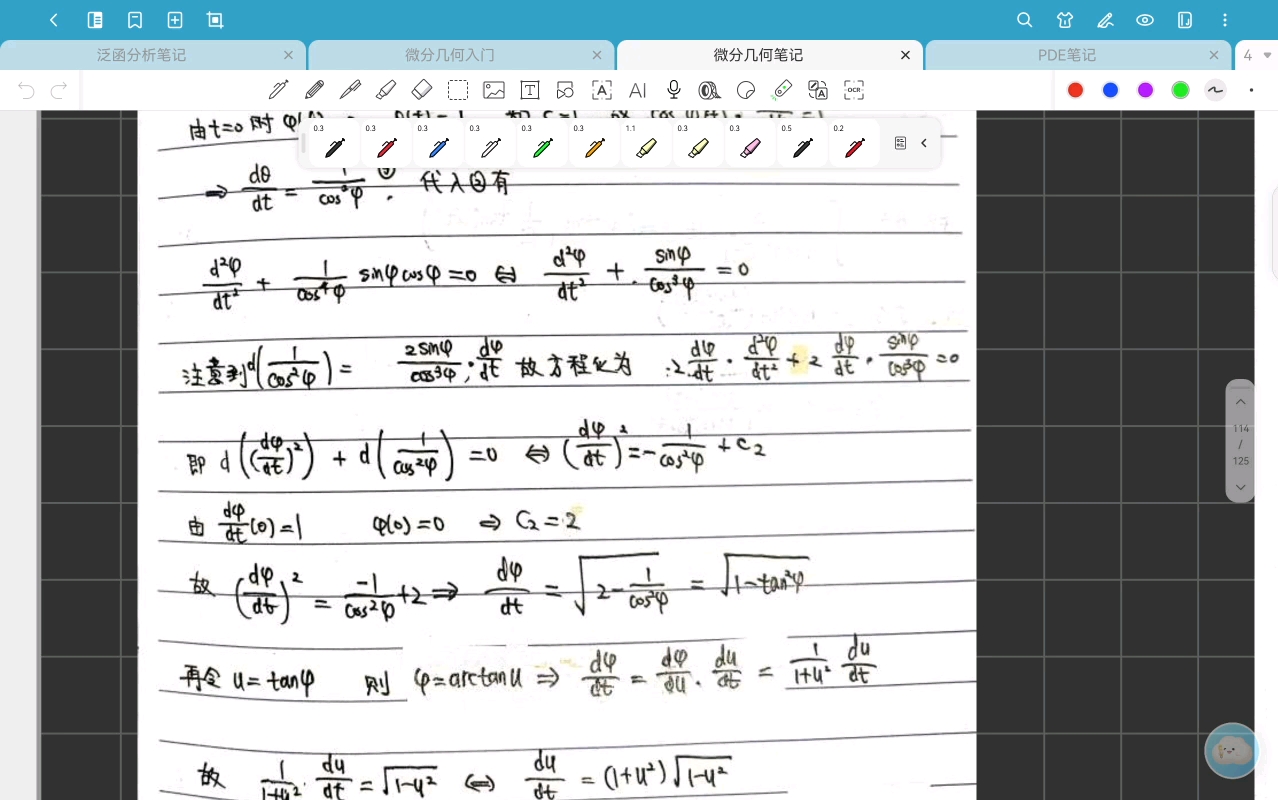 泛函分析笔记 × 微分几何入门 × 微分几何笔记 × PDE笔记 × 4
T A AI A OCR
0.3 0.3 0.3 0.3 0.3 0.3 1.1 0.3 0.3 0.5 0.2
由t=0 时
⇒ dθ/dt = 1/cos²φ ②. 代入①有
d²φ/dt² + 1/cos⁴φ sinφcosφ=0 ⇔ d²φ/dt² + sinφ/cos³φ = 0
注意到d(1/cos²φ) = 2sinφ/cos³φ · dφ/dt 故方程化为 2 dφ/dt · d²φ/dt² + 2 dφ/dt · sinφ/cos³φ = 0
即 d((dφ/dt)²) + d(1/cos²φ) = 0 ⇔ (dφ/dt)² = -1/cos²φ + C₂
由 dφ/dt(0)=1 φ(0)=0 ⇒ C₂=2
故 (dφ/dt)² = -1/cos²φ +2 ⇒ dφ/dt = √(2-1/cos²φ) = √(1-tan²φ)
再令 u=tanφ 则 φ=arctanu ⇒ dφ/dt = dφ/du · du/dt = 1/(1+u²) du/dt
故 1/(1+u²) · du/dt = √(1-u²) ⇔ du/dt = (1+u²)√(1-u²)
114
/
125